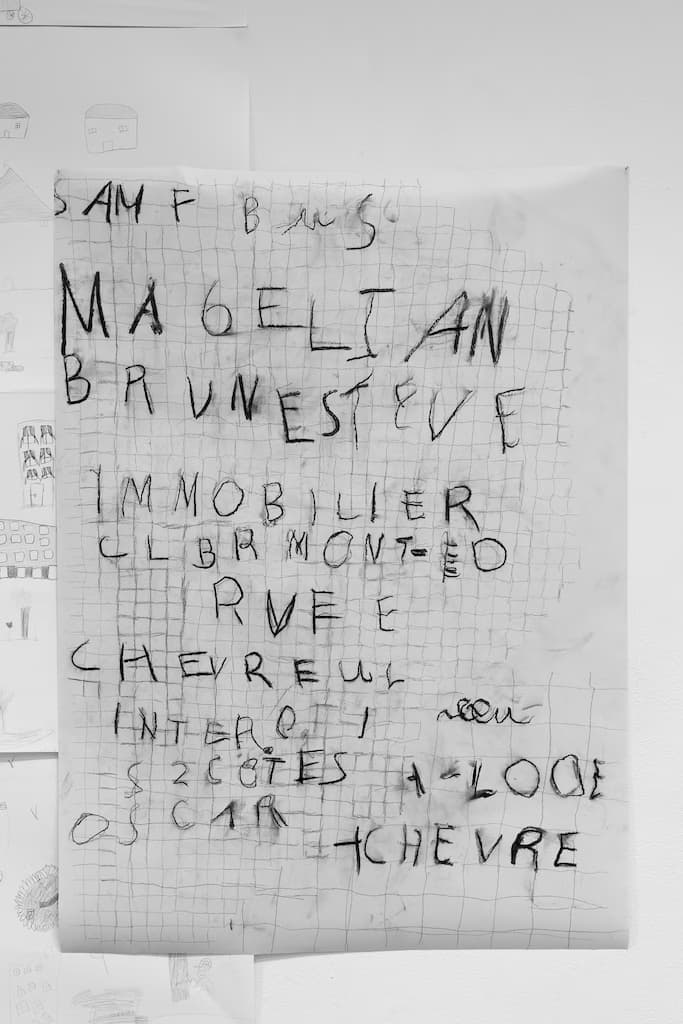 SAMF BUS
MAGELIAN
BRUNESTEVE
IMMOBILIER
CLBR MONT-ED
RUEE
CHEVREUL
INTER
S 2 COTES A-LODE
OSCAR
+CHEVRE